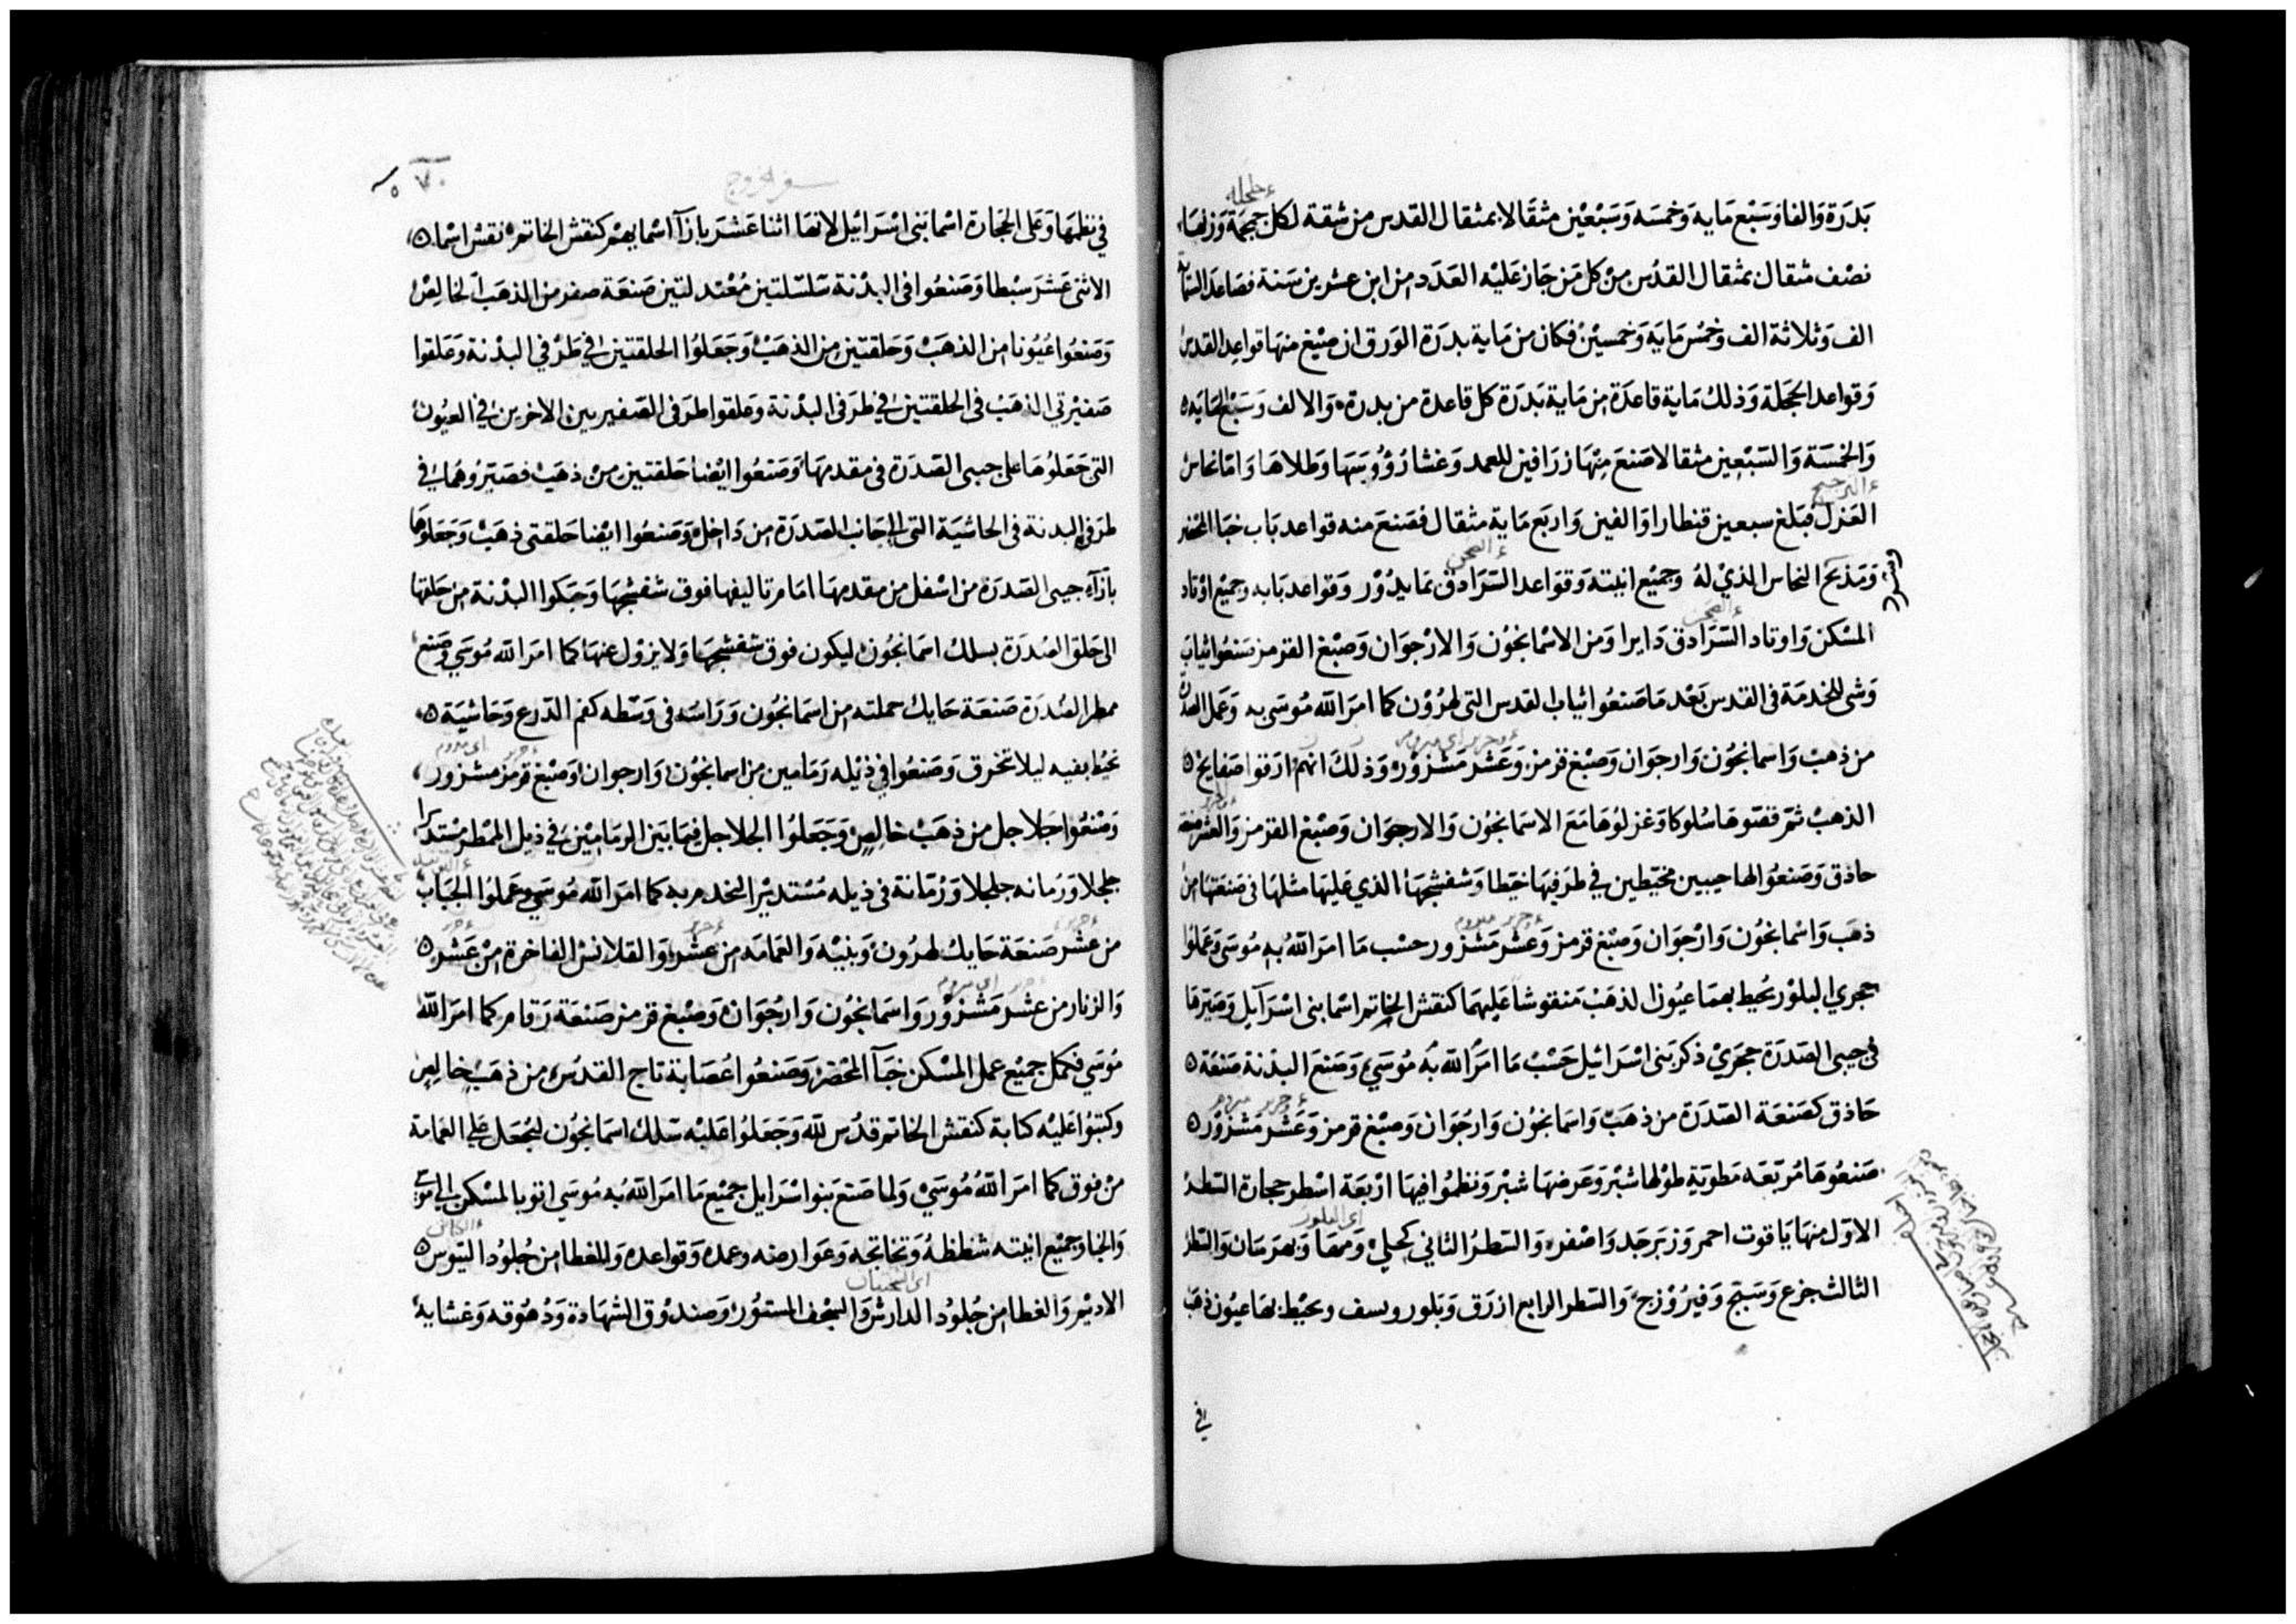 جلجله
بَدرَة وَالفا وَسَبْع مَايه وَخمسَه وَسَبْعيْن مثقَالا بمثقال القدس من شقة لكل جمجمَة وَزنهَا
نصْف مثقال بمثقال القدُس منْ كل مَن جَاز عَليْه العَدَد من ابن عشرين سَنة فصَاعدَا الستماية
الف وَثلاثة الف وَخمْس مَايَة وَخمسيْن فكَان من مَاية بدرَة الوَرق ان صيْغ منهَا قواعِد القدس
وَقواعد الحجَلة وَذلكَ مَاية قاعدَة من مَاية بَدرَة كل قاعدة من بدرة وَالالف وَسَبْع المايَه
وَالخمْسَة وَالسَبْعين مثقالا صَنعَ مِنْهَا زرَافين للعمد وَغشا رُؤوسَهَا وَطلاهَا وَامّا نحاس
الترجيح
العَزل فبَلغ سبعين قنطارا وَالفين وَاربَع مَاية مثقال فصَنعَ منه قواعد بَاب خبَا المحْضر
الصحن
وَمَذبَح النحاس الذيْ لهُ وَجميْع انيته وَقوَاعد السَرَادق مَا يدُوْر وَقواعد بَابه وجميْع اوْتاد
الصحن
المسْكن وَاوتاد السَرَادق دَايرا وَمن الاسْمانجُون وَالارْجوَان وَصبْغ القرمز صَنعُوا ثيابَ
وَشى للخدمَة فى القدس بَعْد مَا صَنعُوا ثياب القدس التى لهرُوْن كما امرَ اللّه مُوسَى به وَعَمل الصدرَة
وحرير اى مبروم
من ذهبْ وَاسمانجُون وَارجوَان وَصبْغ قرمز وَعَشْر مَشزوْر وَذلكَ انهمْ ارَقوا صَفايح
الذهبْ ثمّ قصّوهَا سُلوكا وَغزلوُهَا مَعَ الاسمَانجُون وَالارجوَان وَصبْغ القرمز وَالعشْر صنعَة
حاذق وَصَنعُوا لهَا جيبين مخيَطين في طرَفيهَا خيَطا وَشفشجهَا الذي عَليهَا مثلهَا فى صَنعَتهَا من
وحرير مبروم
ذهَب وَاسْمانجُون وَارْجوَان وَصبْغ قرمز وَعشْر مَشْزور حسْب مَا امرَ اللّهُ بهِ مُوسَى وَعَملوُا
حجري البلوْر يحيط بهمَا عيُون الذهَبْ مَنقوشا عَليهمَا كنقش الخاتم اسْما بنى اسْرَآيل وَصَيّرهَا
فى جيبى الصَدرَة حجرَيْ ذكر بَنى اسْرَائيل حَسْبْ مَا امرَ اللّه بهُ مُوسَيْ وَصَنعَ البدْنة صَنعَة
وحرير مبروم
حَاذق كصَنعَة الصَدرَة من ذهَبْ وَاسمَانجُون وَارجُوَان وَصبْغ قرمز وَعَشْر مَشزوْر
صَنعُوهَا مُربّعَه مَطويَة طوْلهَا شبْر وَعَرضهَا شبْر وَنظمُوا فيهَا ارْبعَة اسْطر حجارة السَطر
اى البلور
الاوّل منهَا يَاقوت احمر وَزبَرجَد وَاصْفر وَالسَطرُ الثاني كحليْ وَمَهَا وَبهرَمَان وَالسَطر
الثالث جزع وَسَبَج وَفيرُوْزج وَالسَطر الرابع ازرَق وَبَلور ويسف وَيحيْط بهَا عيُون ذهَب
في
سفر الخروج
٧٠
في نظمهَا وَعَلى الحجَارة اسْما بَنى اسْرَائيل لانهَا اثنا عَشرَ بازآ اسْمايهمْ كنقش الخاتم نقش اسْما
الاثنى عَشرَ سبْطا وَصَنعُوا فى البدْنة سَلسَلتين مُعْتدلتين صَنعَة ضفر من الذهَب الخالِصْ
وَصَنعُوا عُيُونا من الذهَبْ وَحَلقتين من الذهَبْ وَجَعَلوُا الحلقتين في طَرْفي البدْنة وَعَلقوا
ضَفيْرتي الذهَبْ فى الحلقتين في طرَفى البدْنة وَعلقوا طرَفى الضَفيرتين الاخرين في العيُون
التى جَعَلوُهَا على جيبى الصَدرَة فى مقدمهَا وَصَنعُوا ايْضا حَلقتين منْ ذهَبْ فصَيّرُوهُمَا في
طرَفى البدنة فى الحاشيَة التى الى جَانب الصَدرَة من دَاخل وَصَنعُوا ايْضا حَلقتى ذهَبْ وَجَعَلوُهَا
بازآء جيبى الصَدرَة من اسْفل من مقدمهَا امَام تاليفهَا فوق شفشجهَا وَحبَكوا البدْنة من حَلقهَا
الى حَلق الصُدرَة بسلك اسمَانجُون ليكون فوق شفشجهَا وَلا يزوْل عنهَا كمَا امرَ اللّه مُوسَي وَصَنع
ممطر الصُدرَة صَنعَة حَايك جملته من اسمَانجُون وَرَاسَه فى وَسْطه كفم الدّرع وَحَاشيَة
تحيُط بفيه ليلا تخرق وَصَنعُوا في ذيْله رمَامين من اسمانجُون وَارجوان وَصبْغ قرمز مشزور
وَصَنعُوا جَلاجل من ذهَبْ خالِصْ وَجَعَلوُا الجلاجل فيمَا بَين الرمَاميْن في ذيل الممْطر مسْتديرا
جلجلا وَرمَانه جلجلا وَرُمّانة فى ذيله مُسْتديْرا لخدم به كما امرَ اللّه مُوسَي وَعَملوُا الجبَاب
من عشْر صَنعَة حَايك لهرُون وَبَنيْه وَالعمَامَه من عشْر وَالقلانسْ الفاخرة منْ عَشْر
وَالزنار من عشْر مَشْزوْر وَاسْمَانجُون وَارْجُوَان وَصبْغ قرمز صَنعَة رَقام كمَا امرَ اللّهُ
مُوسَي فكمل جميْع عمل المسْكن خبَآ المحْضر وَصَنعُوا عُصَابة تاج القدُس من ذهَبْ خالِصْ
وَكتبُوا عَليْه كتابة كنقش الخاتم قدُس للّه وَجَعَلوُا عَليْه سَلك اسمَانجُون ليُجْعَل عَلي العمَامة
منْ فوق كمَا امرَ اللّهُ مُوسَيْ وَلما صَنعَ بَنوا اسْرَايل جميْع مَا امرَ اللّهُ به مُوسَي اتوْ بالمسْكن الى مُوسَي
وَالخبَا وَجميْع انيته شظظهُ وَتخاتجَه وَعَوَارضه وعمده وَقوَاعده وَالغطا من جُلوُد التيوس
اى التختباب
الاديْم وَالغطا من جُلوُد الدارش وَالسَجْف المستوُر وَصندُوْق الشهَادة وَدُهُوقه وَغشايهْ